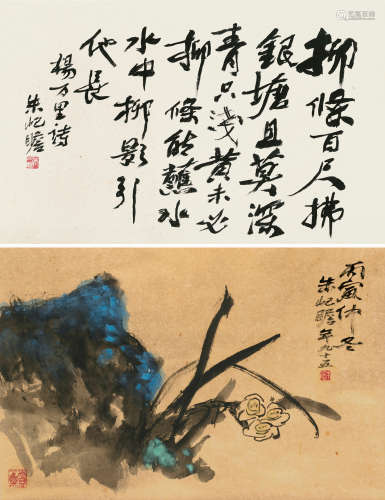 柳條百尺拂
銀塘且莫深
青只淺黃未必
柳條能蘸水
水中柳影引
他長
楊万里詩
朱屺瞻
丙寅仲冬
朱屺瞻年九十五